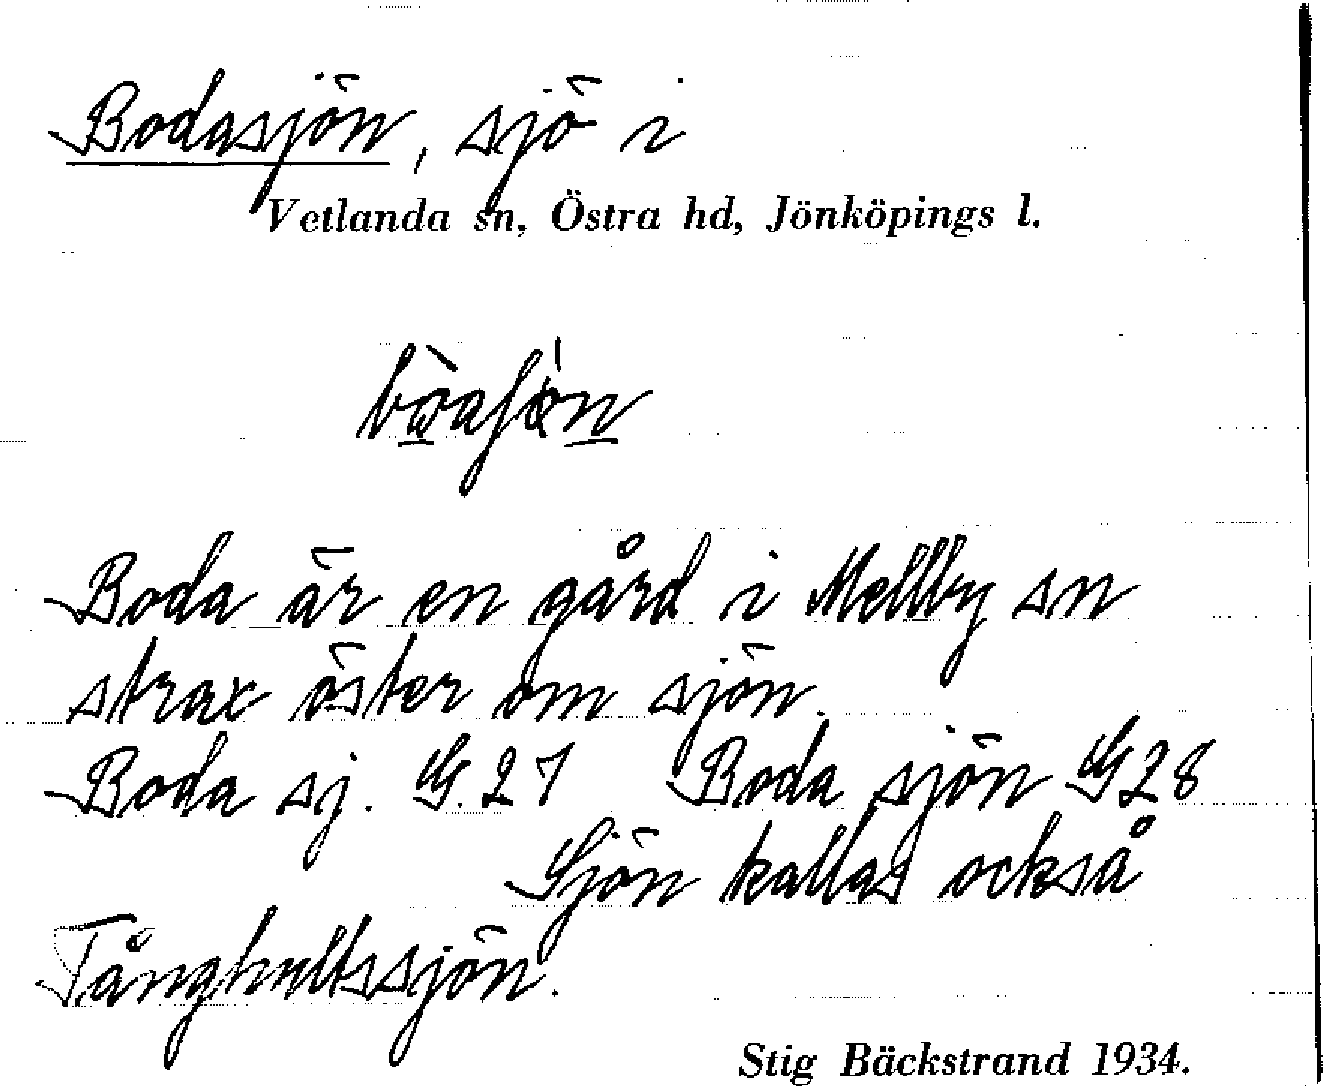 Bodasjön, sjö i
Vetlanda sn, Östra hd, Jönköpings l.
Boda är en gård i Mellby sn
strax öster om sjön.
Boda sj. G. 27 Boda sjön G 28
Sjön kallas också
Tånghultssjön.
Stig Bäckstrand 1934.